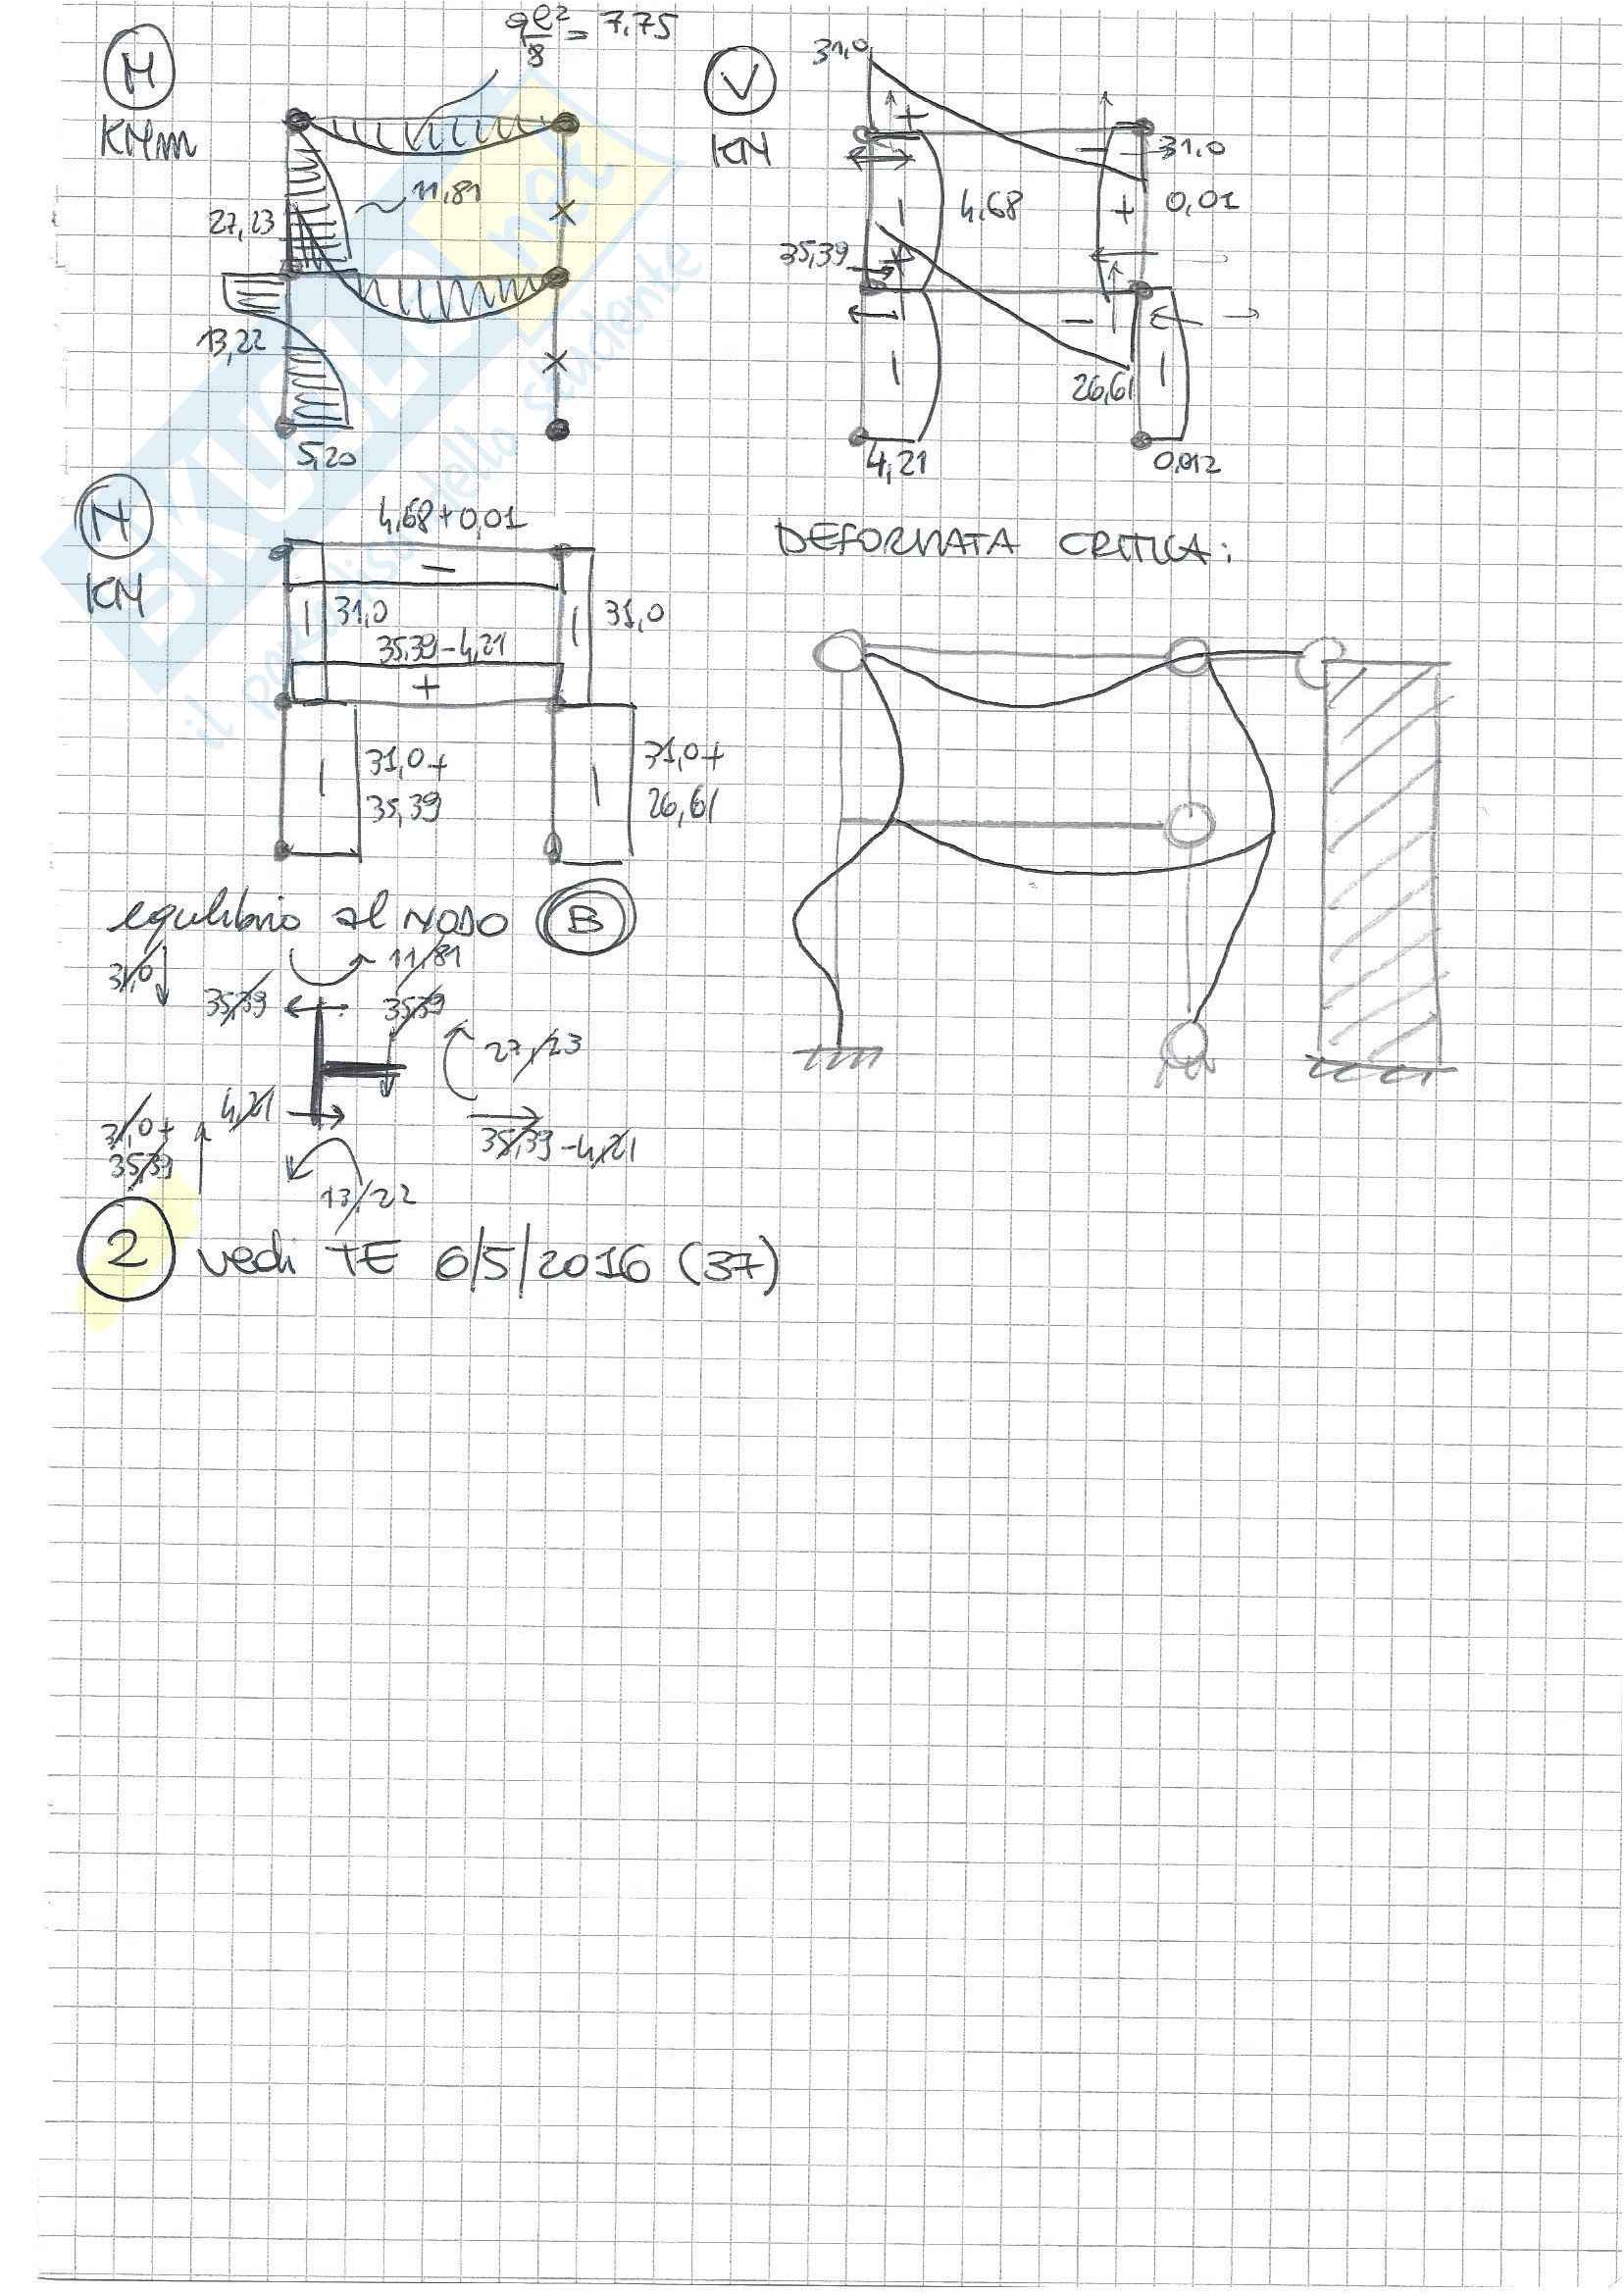 qℓ²/8 = 7,75
M
KNm
11,81
27,23
13,22
5,20
V
KN
31,0
31,0
4,68
0,01
35,39
26,61
4,21
0,012
N
KN
4,68+0,01
31,0
31,0
35,39-4,21
31,0+
35,39
31,0+
26,61
DEFORMATA CRITICA:
equilibrio al NODO B
31,0
11,81
35,39
35,39
27,23
4,21
31,0+
35,39
35,39-4,21
13,22
2 vedi TE 6/5/2016 (37)
SKUOLA.net
il paradiso dello studente